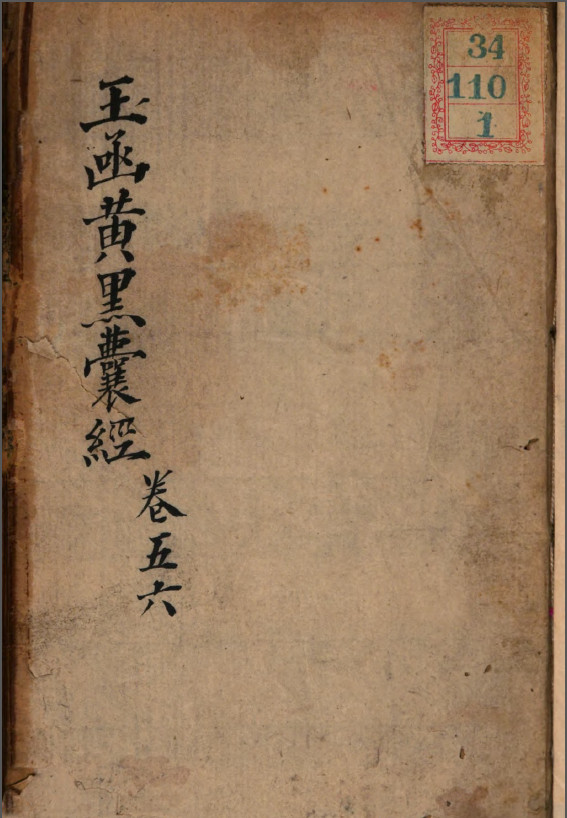 玉函黄黑囊經
卷五六
34
110
1